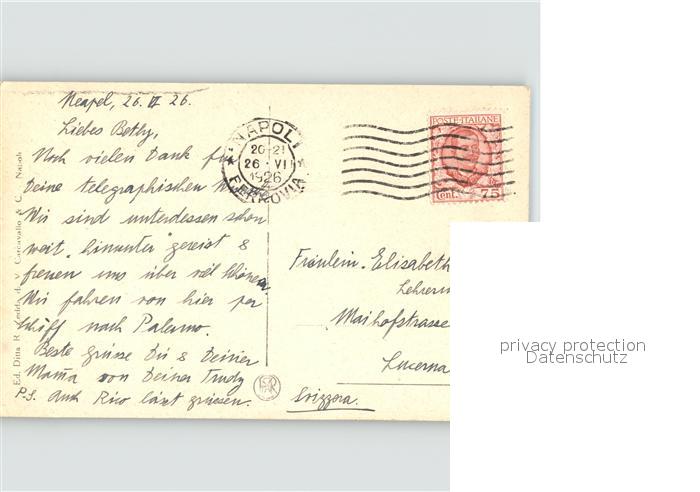 Neapel, 26. VI 26.
Liebes Bethy,
Noch vielen Dank für
Deine telegraphischen
Wir sind unterdessen schon
weit "hinunter" gereist &
freuen uns über all Schönen
Wir fahren von hier per
Schiff nach Palermo.
Beste Grüsse Dir & Deiner
Mama von Deiner Trudy
P.S. Auch Rico lässt grüssen.
Ed. Ditta R. Zedda di V. Carcavallo & C. Napoli
NAPOLI
20-21
26 · VI
1926
FERROVIA
POSTE ITALIANE
Cent. 75
Fräulein Elisabeth
Lehrerin
Maihofstrasse
Lucerna
Svizzera.
privacy protection
Datenschutz